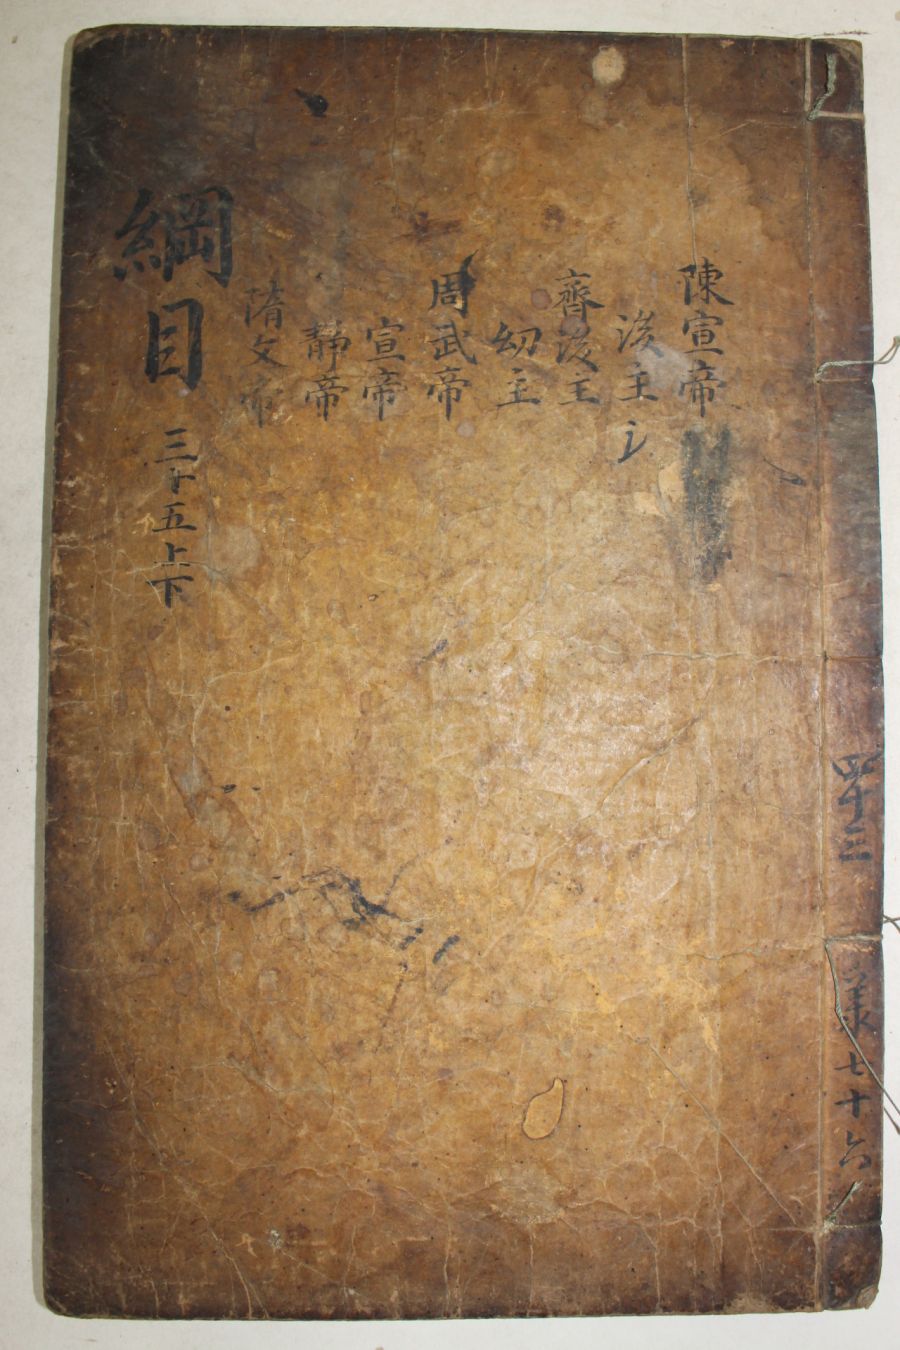 陳宣帝
後主
齊後主
幼主
周武帝
宣帝
靜帝
隋文帝
綱目
三十五上下
四十三
共七十六